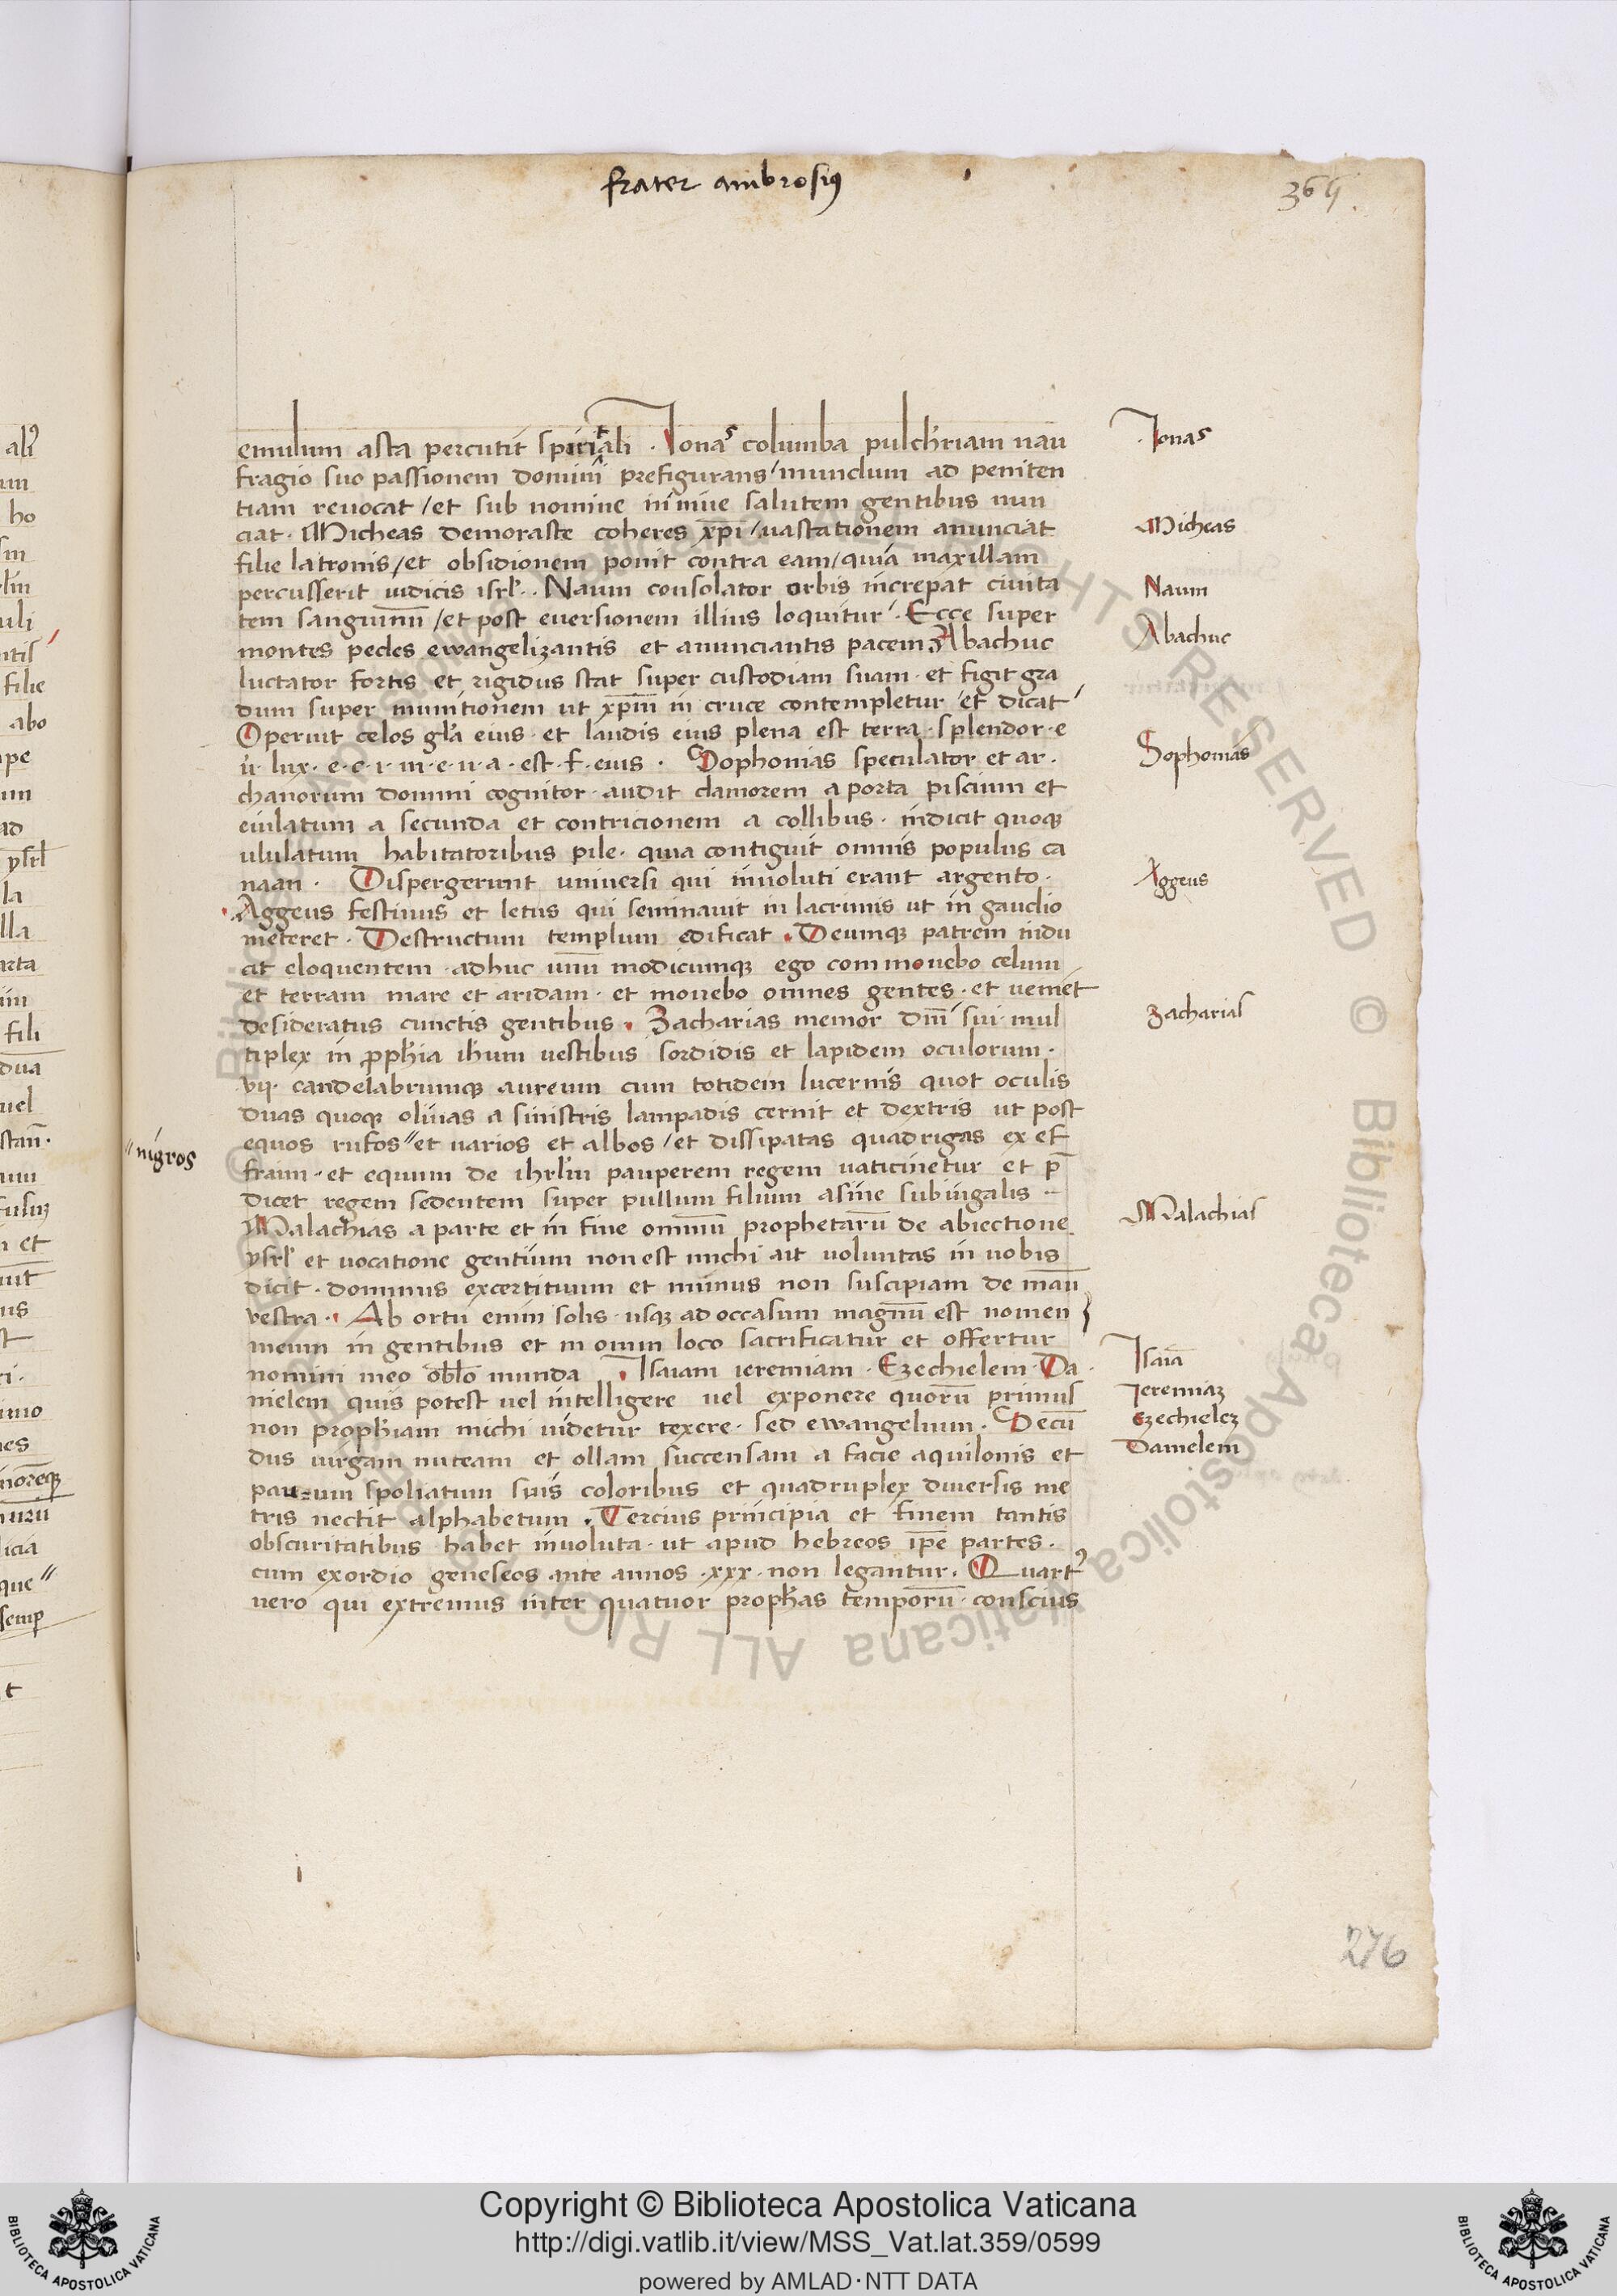 frater ambrosiꝰ
369.
emulum asta percutit spiritali · Ionas columba pulcherriam nau
fragio suo passionem domini prefigurans / mundum ad peniten
tiam reuocat / et sub nomine niniue salutem gentibus nun
ciat · Micheas demoraste coheres xp̄i / uastationem anunciat
filie latronis / et obsidionem ponit contra eam / quia maxillam
percusserit iudicis isrl̓ · Naum consolator orbis increpat ciuita
tem sanguinū / et post euersionem illius loquitur · Ecce super
montes pedes ewangelizantis et anunciantis pacem Abachuc
luctator fortis et rigidus stat super custodiam suam · et figit gra
dum super munitionem ut xp̄m in cruce contempletur et dicat
Operuit celos gl̓a eius · et laudis eius plena est terra · splendor · e
ú · lux · e · e · i · m · e · u · a · est · f · eius · Sophonias speculator et ar ·
chanorum domini cognitor · audit clamorem a porta piscium et
eiulatum a secunda et contricionem a collibus · indicit quoqꝫ
ululatum habitatoribus pile · quia contiguit omnis populus ca
naan · Dispergerunt uniuersi qui inuoluti erant argento ·
Aggeus festinus et letus qui seminauit in lacrimis ut in gaudio
meteret · Destructum templum edificat · Deumqꝫ patrem indu
cit eloquentem · adhuc unū modicumqꝫ ego commouebo celum
et terram mare et aridam · et mouebo omnes gentes · et ueniet
desideratus cunctis gentibus · Zacharias memor dn̄i sui · mul
tiplex in ꝓph̓ia ih̓um uestibus sordidis et lapidem oculorum ·
vij · candelabrumqꝫ aureum cum totidem lucernis quot oculis
duas quoqꝫ oliuas a sinistris lampadis cernit et dextris ut post
equos rufos // et uarios et albos / et dissipatas quadrigas ex ef
fraim · et equum de ihrl̓m pauperem regem uaticinetur et p̄
dicet regem sedentem super pullum filium asine subiugalis ·
Malachias a parte et in fine omniū prophetarū de abiectione
ysrl̓ et uocatione gentium non est michi ait uoluntas in uobis
dicit · dominus excertituum et munus non suscipiam de manu
vestra · Ab ortu enim solis · usqꝫ ad occasum magnū est nomen
meum in gentibus et in omni loco sacrificatur et offertur
nomini meo obl̄o munda Isaiam ieremiam · Ezechielem · Da ·
nielem quis potest uel intelligere uel exponere quorū primus
non proph̓iam michi uidetur texere · sed ewangelium · Secū
dus uirgam nuceam et ollam succensam a facie aquilonis et
pardum spoliatum suis coloribus et quadruplex diuersis me
tris nectit alphabetum · Tercius principia et finem tantis
obscuritatibus habet inuoluta · ut apud hebreos ip̄e partes ·
cum exordio geneseos ante annos · xxx · non legantur · Quartꝰ
uero qui extremus inter quatuor proph̓as temporū · conscius
Ionas
Micheas
Naum
Abachuc
Sophonias
Aggeus
Zacharias
// nigros
Malachias
Isaiā
Ieremiaꝫ
Ezechieleꝫ
Danielem
276
Copyright © Biblioteca Apostolica Vaticana
http://digi.vatlib.it/view/MSS_Vat.lat.359/0599
powered by AMLAD·NTT DATA
BIBLIOTECA APOSTOLICA VATICANA
BIBLIOTECA APOSTOLICA VATICANA
© Biblioteca Apostolica Vaticana ALL RIGHTS RESERVED